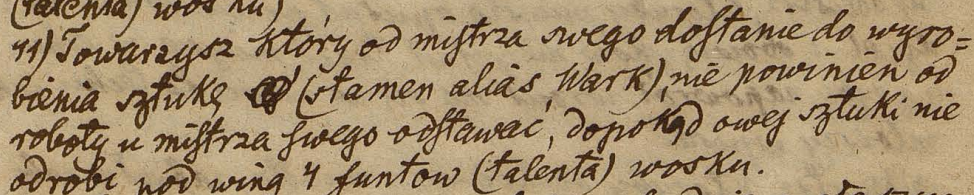 (talenta) wosku)
11) Towarzysz który od mistrza swego dostanie do wyro=
bienia sztukę (stamen alias Wark), nie powinien od
roboty u mistrza swego odstawać, dopokąd owej sztuki nie
odrobi pod winą 4 funtow (talenta) wosku.